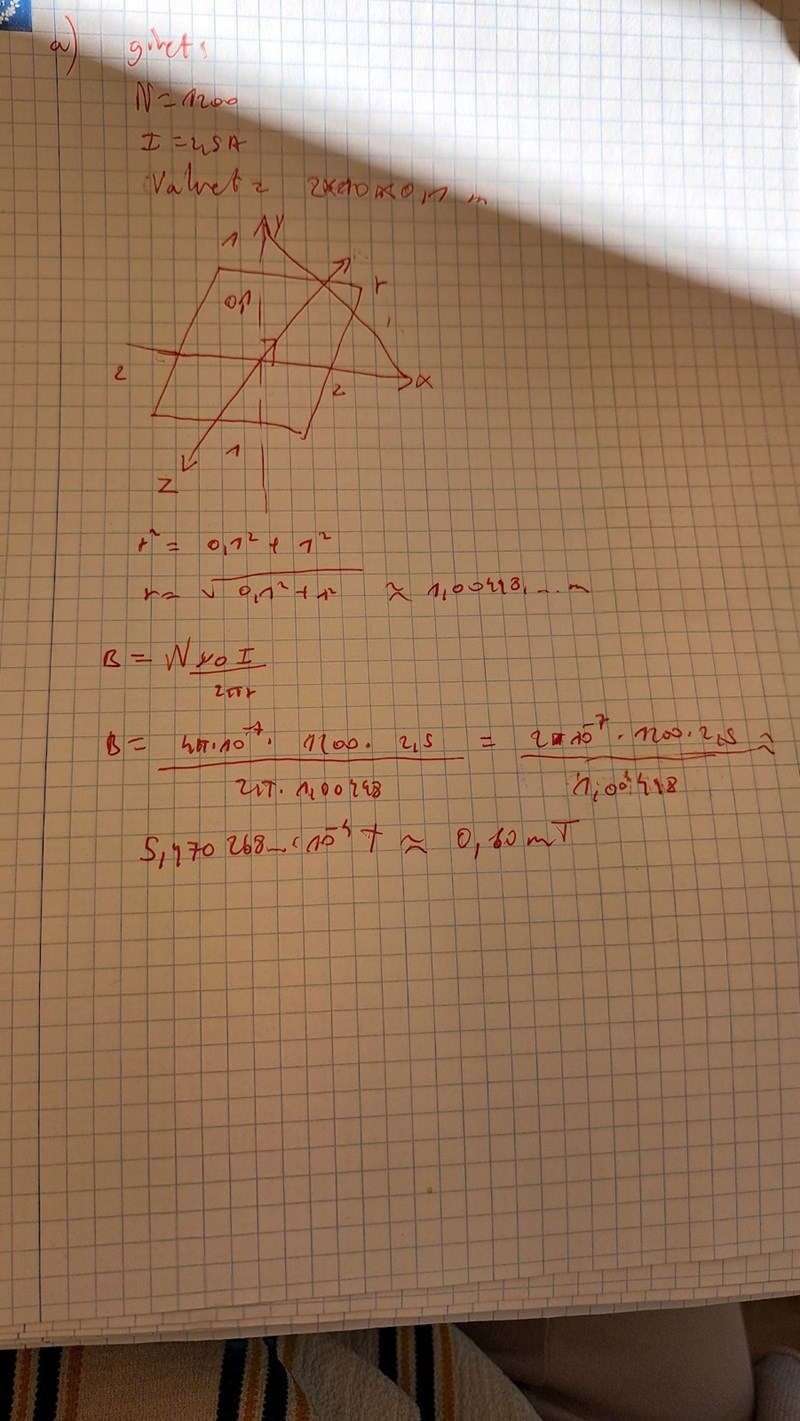 a) givet:
N = 1200
I = 2,5 A
Valvet = 2×10×0,1 m
1 y
0,1 r
2 2 x
1
z
r² = 0,1² + 1²
r = √0,1² + 1² ≈ 1,00498... m
B = Nμ₀I / 2πr
B = 4π·10⁻⁷ · 1200 · 2,5 / 2π · 1,00498 = 2·10⁻⁷ · 1200 · 2,5 / 1,00498 ≈
5,970268...·10⁻⁴ T ≈ 0,60 mT